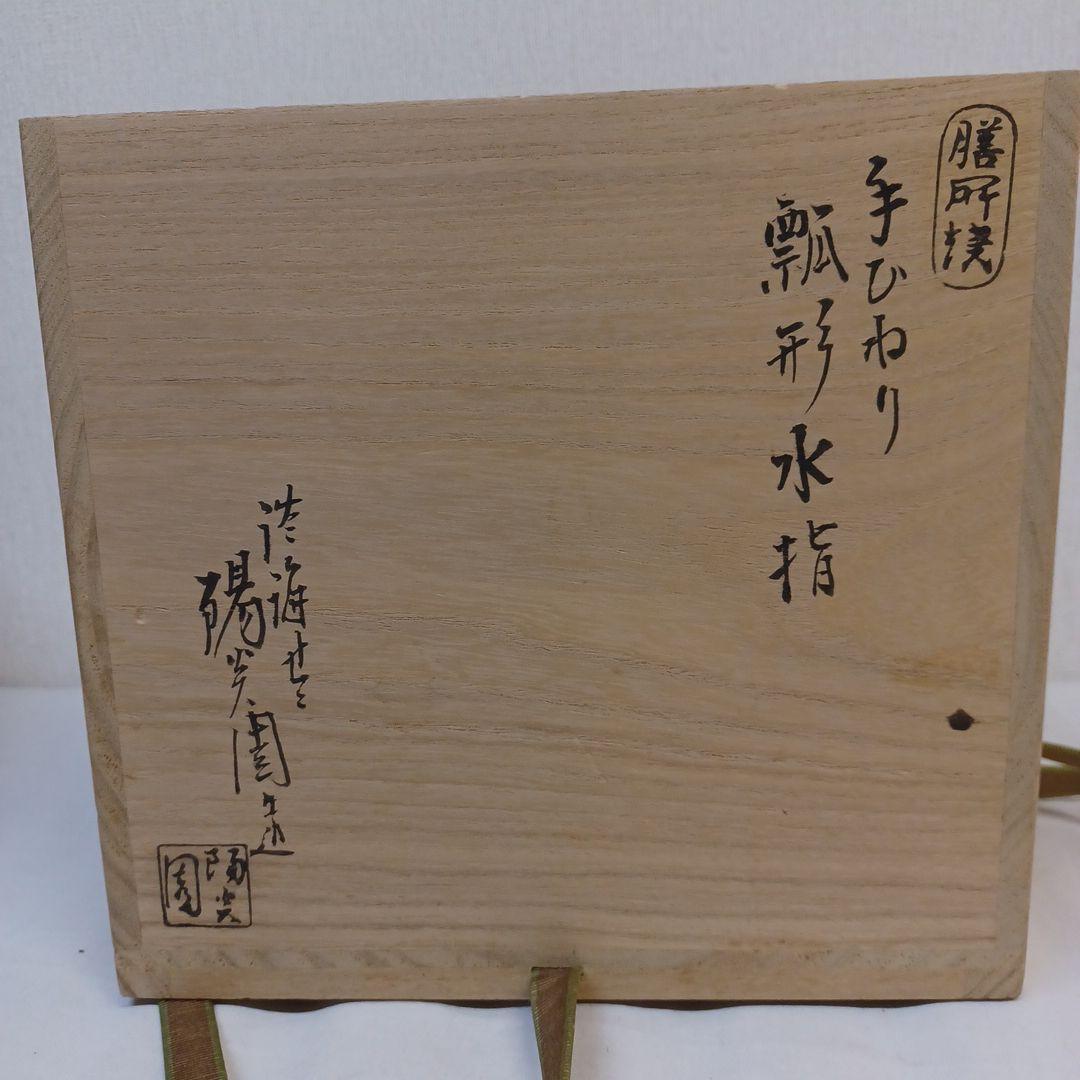 膳所焼
手ひねり
瓢形水指
淡海
陽炎園造
陽炎園